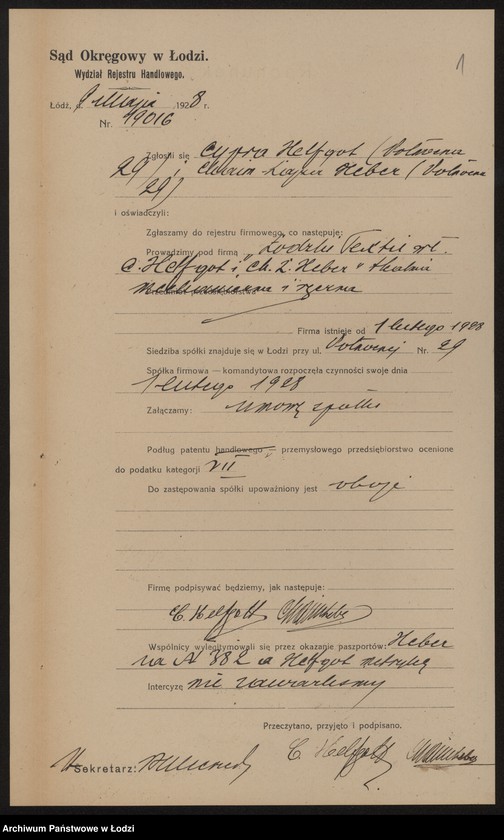 1
Sąd Okręgowy w Łodzi.
Wydział Rejestru Handlowego.
Łódź, d. 9 Maja 1928 r.
Nr. 19016
Zgłosili się Cypra Helfgot (Północna
29) i Chaim Heber (Północna
29)
i oświadczyli:
Zgłaszamy do rejestru firmowego, co następuje:
Prowadzimy pod firmą „Łódzki Textil wł.
C. Helfgot i Ch. L. Heber" tkalnie
mechaniczne i ręczne
Firma istnieje od 1 lutego 1928
Siedziba spółki znajduje się w Łodzi przy ul. Północnej Nr. 29
Spółka firmowa — komandytowa rozpoczęła czynności swoje dnia
1 lutego 1928
Załączamy: umowę spółki
Podług patentu handlowego — przemysłowego przedsiębiorstwo ocenione
do podatku kategorji VII
Do zastępowania spółki upoważniony jest oboje
Firmę podpisywać będziemy, jak następuje:
C Helfgott
Wspólnicy wylegitymowali się przez okazanie paszportów: Heber
na N 382 a Helfgot metryką
Intercyzę nie zawarliśmy
Przeczytano, przyjęto i podpisano.
C. Helfgott
Sekretarz:
Archiwum Państwowe w Łodzi